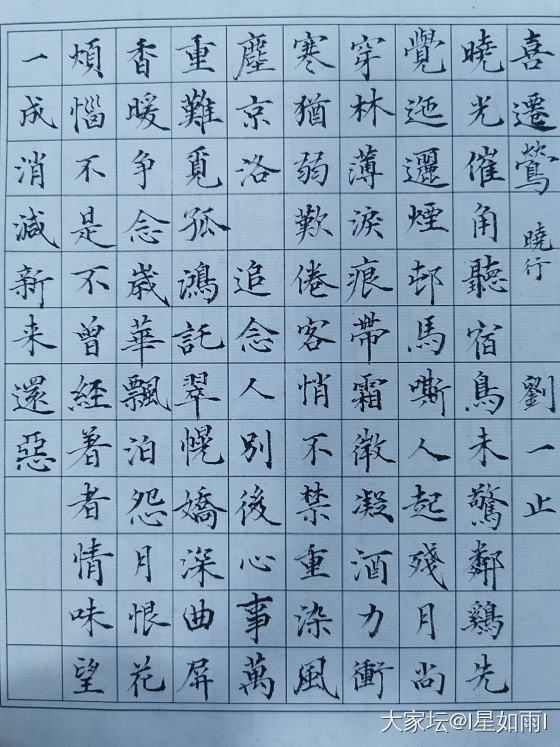 喜遷鶯 曉行 劉一止
曉光催角聽宿鳥未驚鄰鷄先
覺迤邐煙邨馬嘶人起殘月尚
穿林薄淚痕帶霜微凝酒力衝
寒猶弱歎倦客悄不禁重染風
塵京洛 追念人別後心事萬
重難覓孤鴻託翠幌嬌深曲屏
香暖争念歲華飄泊怨月恨花
煩惱不是不曾經着者情味望
一成消減新来還惡
大家坛@I星如雨I